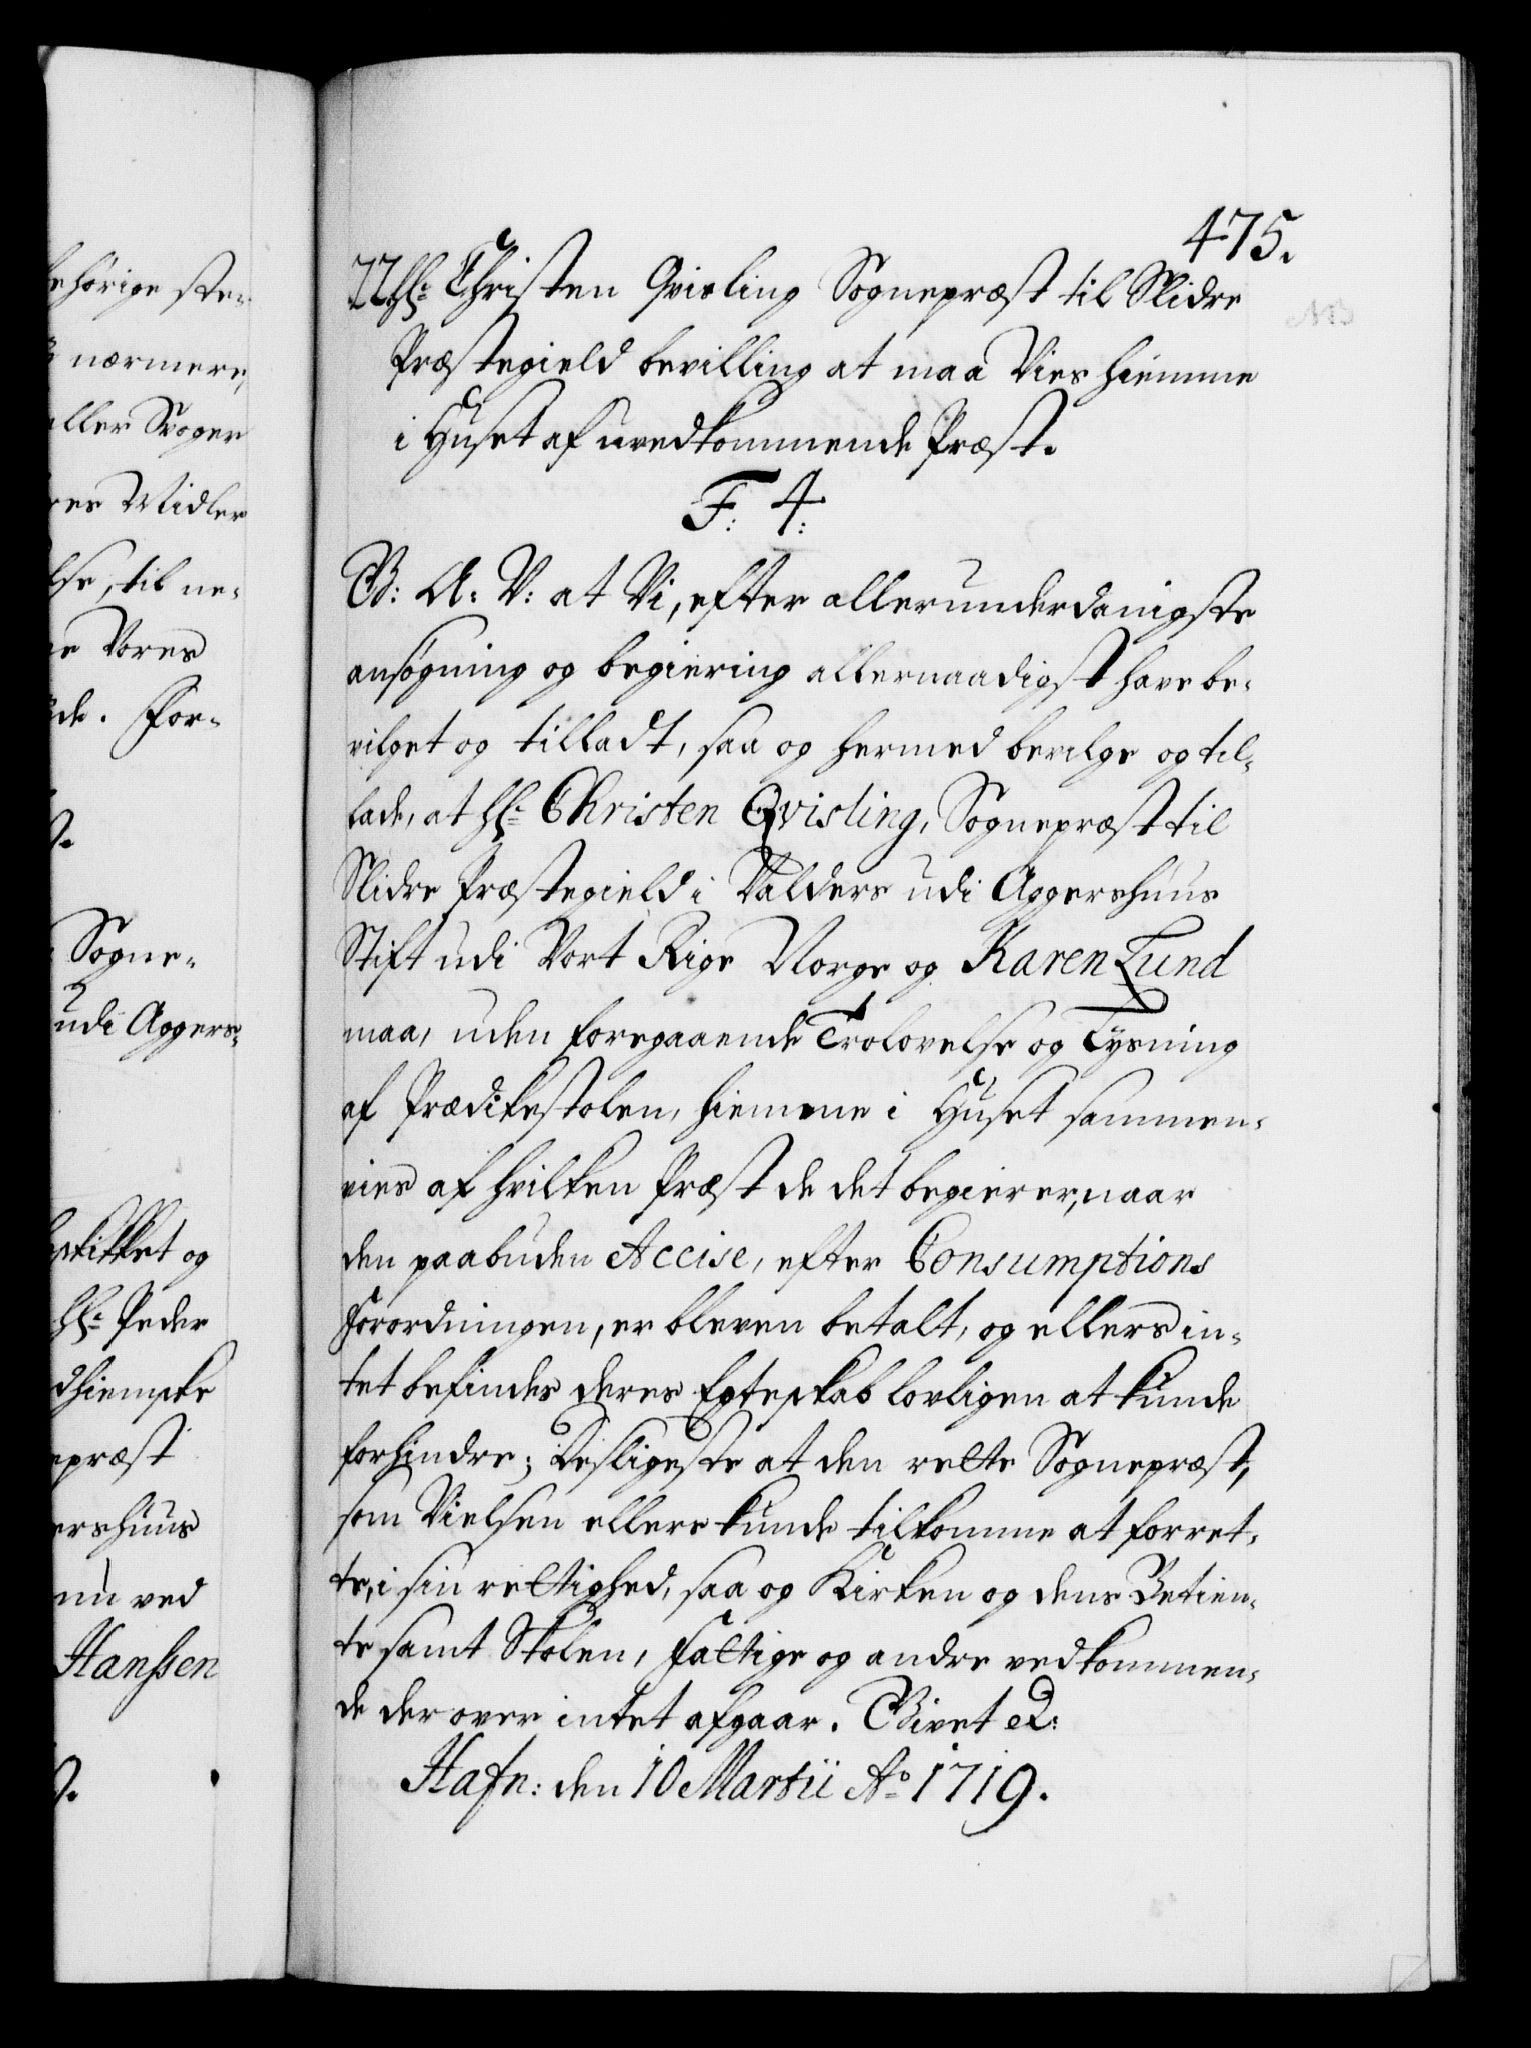 ehörige ste-
nærmere,
aller Svoger
res Midler
lse, til ne-
ge Vores
de. For-
Sogne-
udi Aggers-
skikket og
Hr: Peder
dhiemske
epræst
ershuus
nu ved
Hanssen
475.
Hr: Christen Qvisling Sognepræst til Slidre
Præstegield bevilling at maa Vies hiemme
i Huset af uvedkommende Præst.
F: 4:
G: A: V: at Vi, efter allerunderdanigste
ansøgning og begiering allernaadigst have be-
vilget og tilladt, saa og hermed bevilge og til-
lade, at Hr: Christen Qvisling, Sognepræst til
Slidre Præstegield i Valders udi Aggershuus
Stift udi Vort Rige Norge og Karen Lund
maa, uden foregaaende Trolovelse og Lysning
af Prædikestolen, hiemme i Huset sammen-
vies af hvilken Præst de det begierer, naar
den paabuden Accise, efter Consumptions
Forordningen, er bleven betalt, og ellers in-
tet befindes deres Egteskab lovligen at kunde
forhindre; Desligeste at den rette Sognepræst,
som Vielsen ellers kunde tilkomme at forret-
te, i sin rettighed, saa og Kirken og dens Betien-
te samt Skolen, Fattige og andre vedkommen-
de der over intet afgaar. Givet &:
Hafn: den 10 Martii Ao 1719.